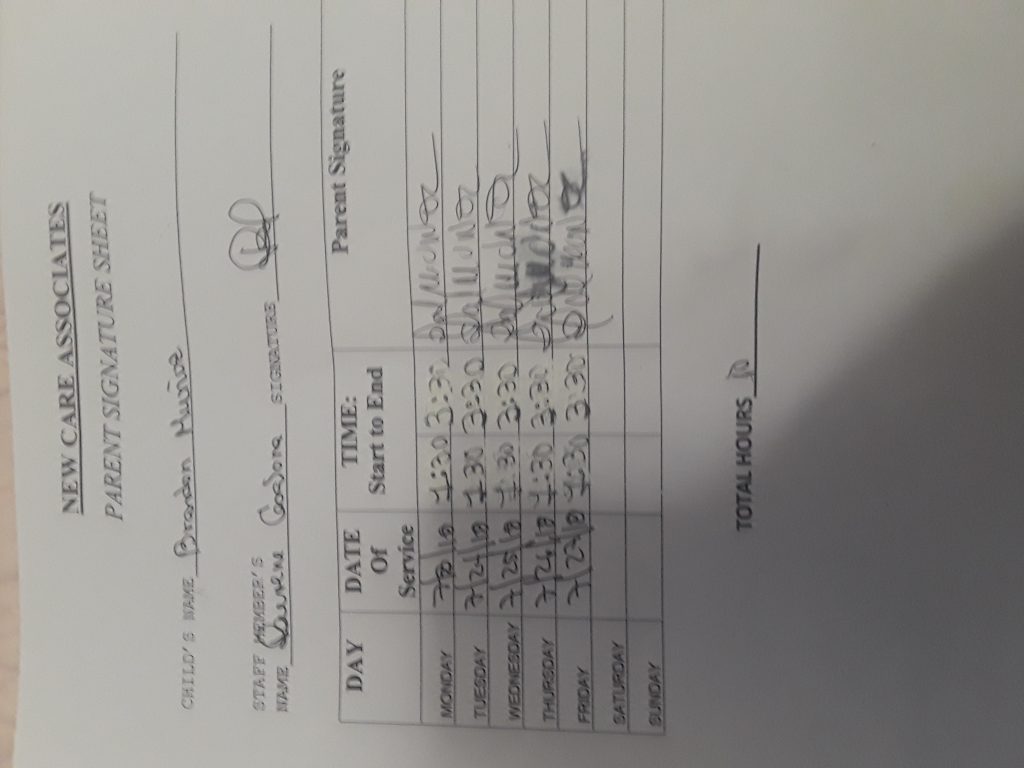 NEW CARE ASSOCIATES
PARENT SIGNATURE SHEET
CHILD'S NAME Brandon Muñoz
STAFF MEMBER'S
NAME SIGNATURE
DAY DATE Of Service TIME: Start to End Parent Signature
MONDAY 1:30 3:30
TUESDAY 7/24/18 1:30 3:30
WEDNESDAY 7/25/18 1:30 3:30
THURSDAY 7/26/18 1:30 3:30
FRIDAY 7/27/18 1:30 3:30
SATURDAY
SUNDAY
TOTAL HOURS 10